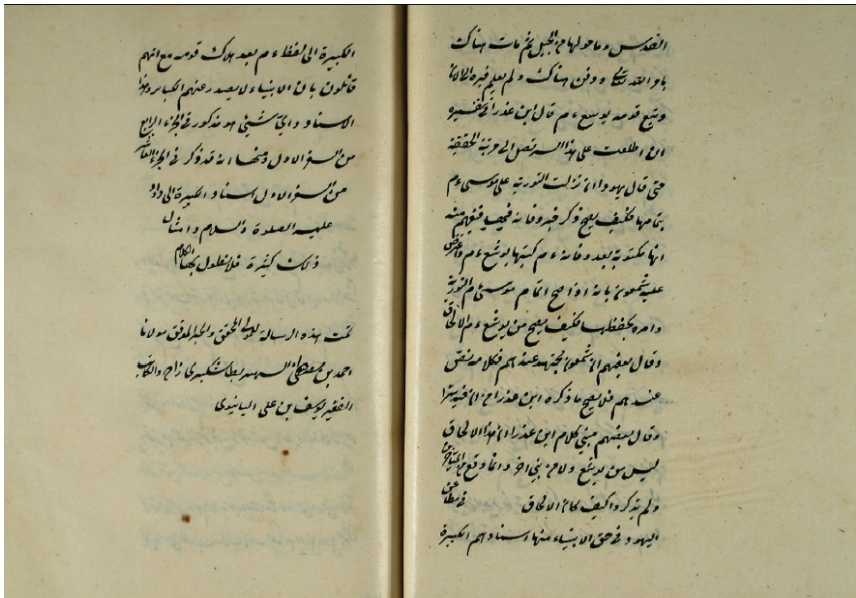 القدس وما حولها من الجبل ثم مات هناك
ودفن هناك ولم يعلم قبره الى الآن
وتبع قومه يوشع ءم قال ابن عذرا في تفسيره
ان اطلعت على هذا السر تصل الى مرتبة الحقيقة
حتى قال يهودا ان نزلت التورية على موسى ءم
بتمامها فكيف يصح ذكر قبره وفاته فيجيب منه
انها مكتوبة بعد وفاته ءم كتبها يوشع ءم واعترض
عليه شمعون بانه اذا صح اتمام موسى ءم التورية
وامره بحفظها فكيف يصح من يوشع ءم الالحاق
وقال بعضهم ان شمعون مجتهد عندهم فكلامه نص
عندهم فلا يصح ما ذكره ابن عذرا من ان فيه سرا
وقال بعضهم مبنى كلام ابن عذرا ان هذا الالحاق
ليس من يوشع ولا من نبي اخر وانما وقع من المتأخرين
ولم يذكروا كيف كان الالحاق في مطاعن
اليهود في حق الانبياء منها اسنادهم الكبيرة
الكبيرة الى لوط ءم بعد هلاك قومه مع انهم
قائلون بان الانبياء لا يصدر عنهم الكبائر وهذا
الاسناد واي شيء هو مذكور في الجزء الرابع
من السفر الاول ومنها انه قد ذكر في الجزء
من السفر الاول اسناد الكبيرة الى داود
عليه الصلوة والسلام وامثال
ذلك كثيرة فلا نطول بها الكلام
تمت هذه الرسالة للمولى المحقق والحبر المدقق مولانا
احمد بن مصطفى الشهير بطاشكبرى زاده والكاتب
الفقير يوسف بن على